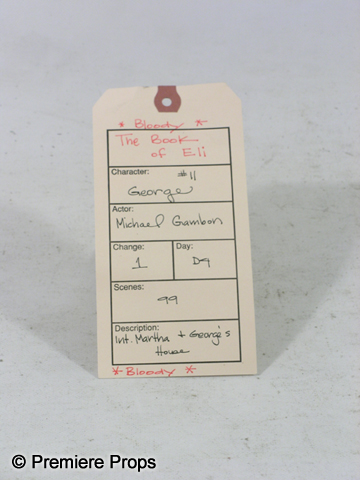 * Bloody *
The Book
of Eli
Character: #11
George
Actor:
Michael Gambon
Change: Day:
1 D9
Scenes:
99
Description:
Int. Martha + George's
House
* Bloody *
© Premiere Props